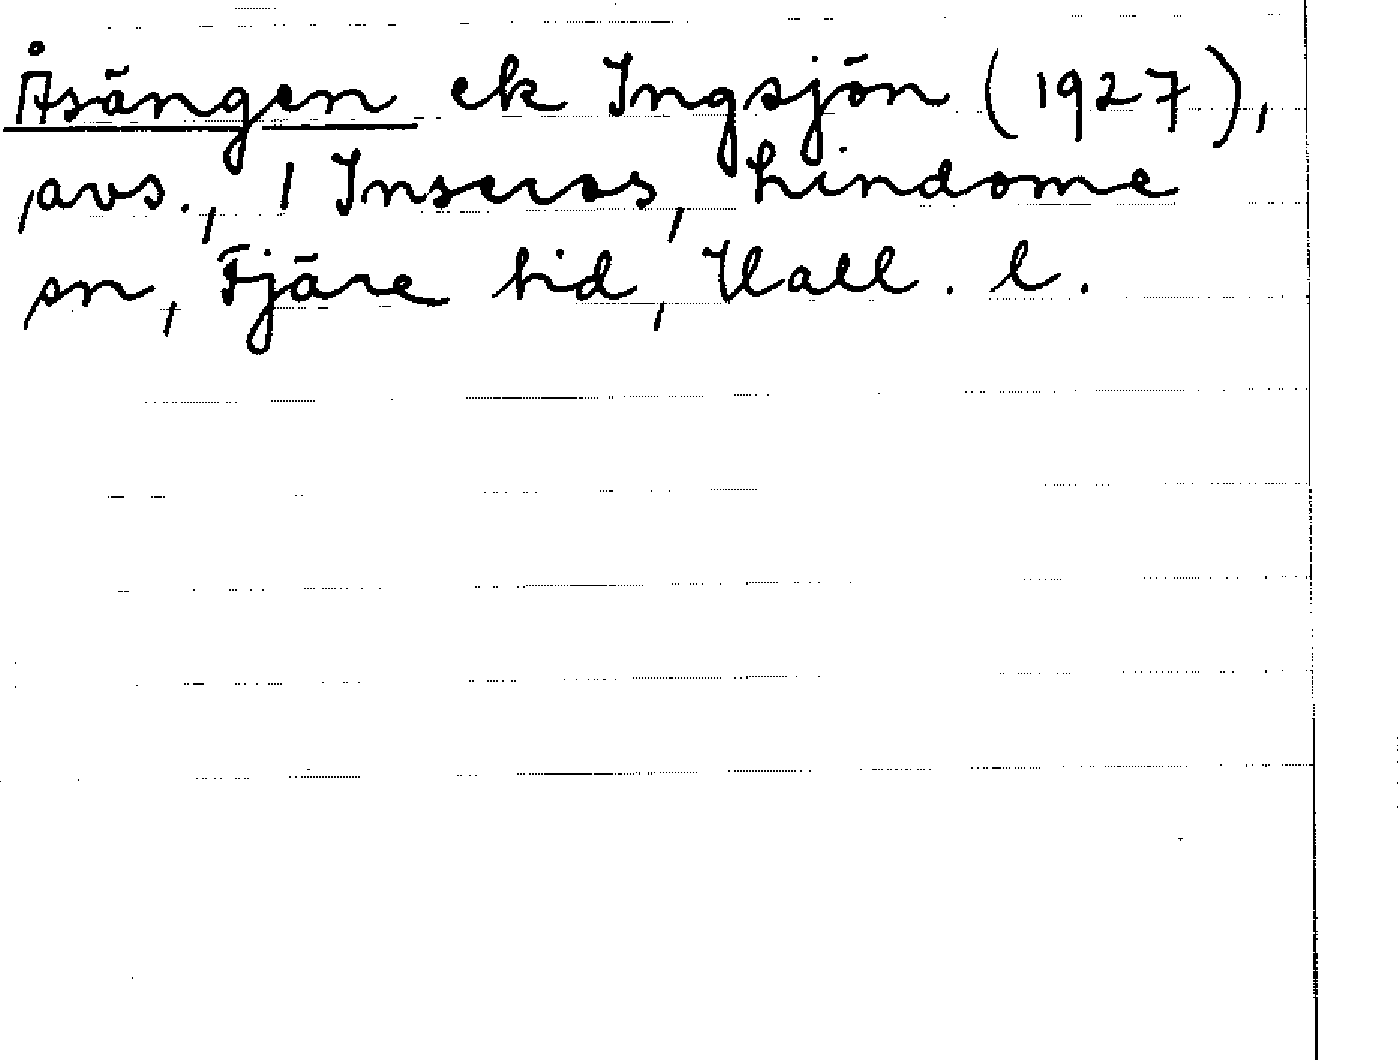 Åsängen ek Ingsjön (1927),
avs., 1 Inseros, Lindome
sn, Fjäre hd, Hall. l.